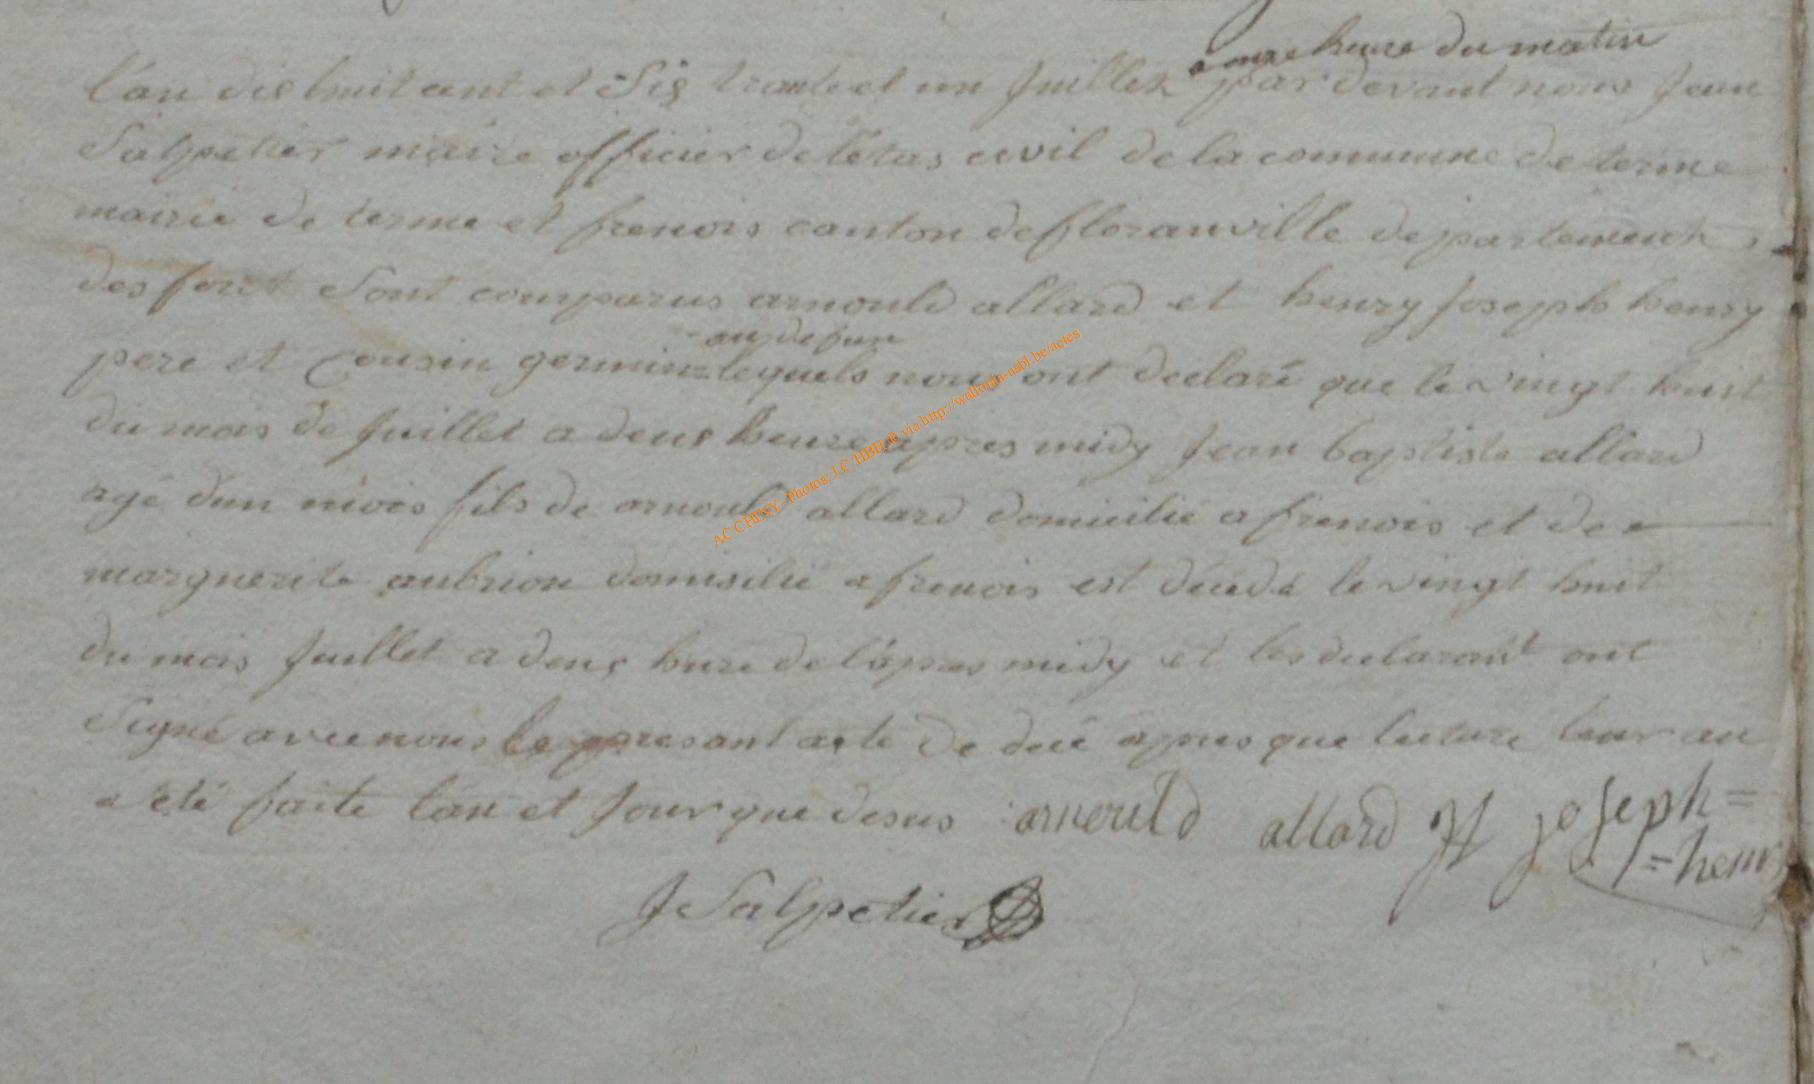 a onze heure du matin
l'an dis huit cent et Sis trante et un Juillet par devant nous Jean
Salpetier maire officier de l'etas civil de la commune de terme
mairie de terme et frenois canton de floranville departement
des foret Sont comparus arnould allard et henry Joseph henry
au defun
pere et Cousin germin lequels nous ont declaré que le vingt huit
du mois de Juillet a deus heure apres midy Jean baptiste allard
agé d'un mois fils de arnould allard domicilié a frenois et de
marguerite aubrion domisilié a frenois est décédé le vingt huit
du mois Juillet a deus hure de l'apres midy et les declarant ont
Signé avec nous le presant acte de decé apres que lecture leur an
a été faite l'an et Jour que desus arnould allard H Joseph =
= henry
J Salpetier
AC CHINY - Photos: J.C HBUJR via http://wallonia-asbl.be/actes